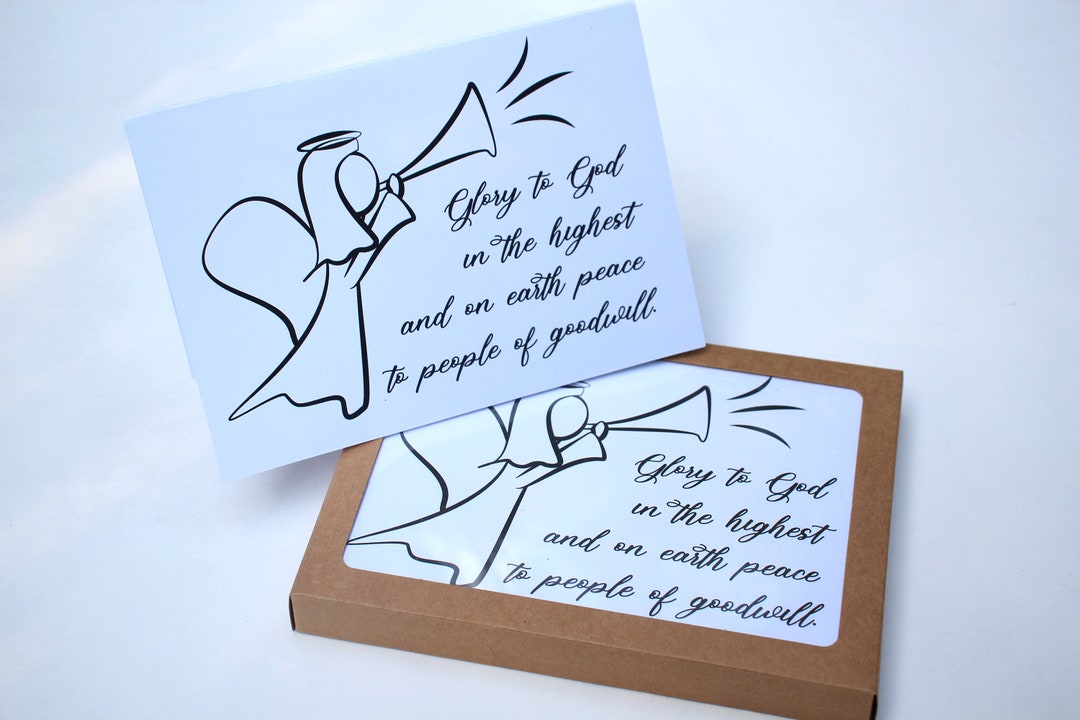 Glory to God
in the highest
and on earth peace
to people of goodwill.
Glory to God
in the highest
and on earth peace
to people of goodwill.